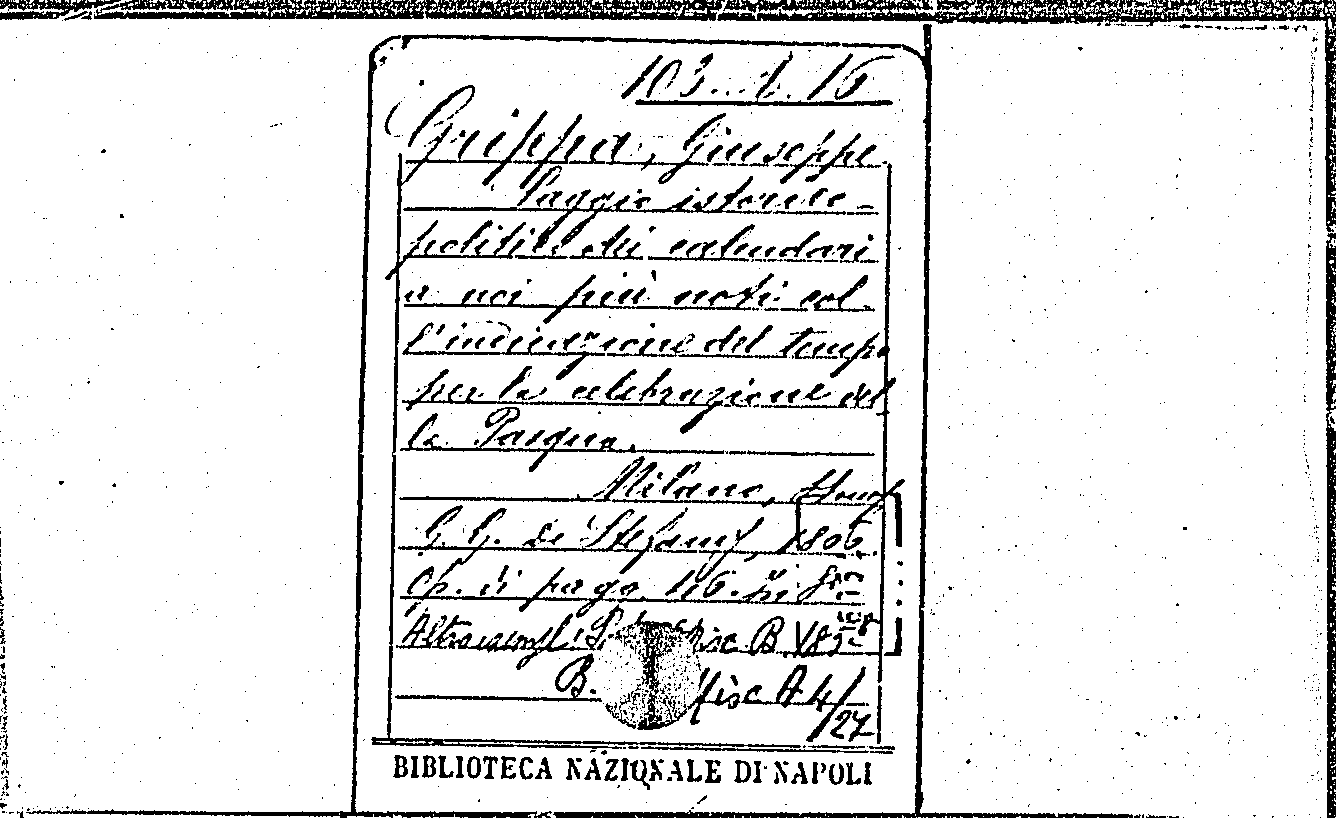 103. A. 16
Grippa, Giuseppe
Saggio istorico-
politico dei calendari
a noi più noti col-
l'indicazione del tempo
per la celebrazione del
la Pasqua.
Milano, Stamp
G. G. de Stefanis, 1806.
Op. di pag. 16. in 8º
Altro esempl. Misc B. 183
B. Misc A 4/
27
BIBLIOTECA NAZIONALE DI NAPOLI